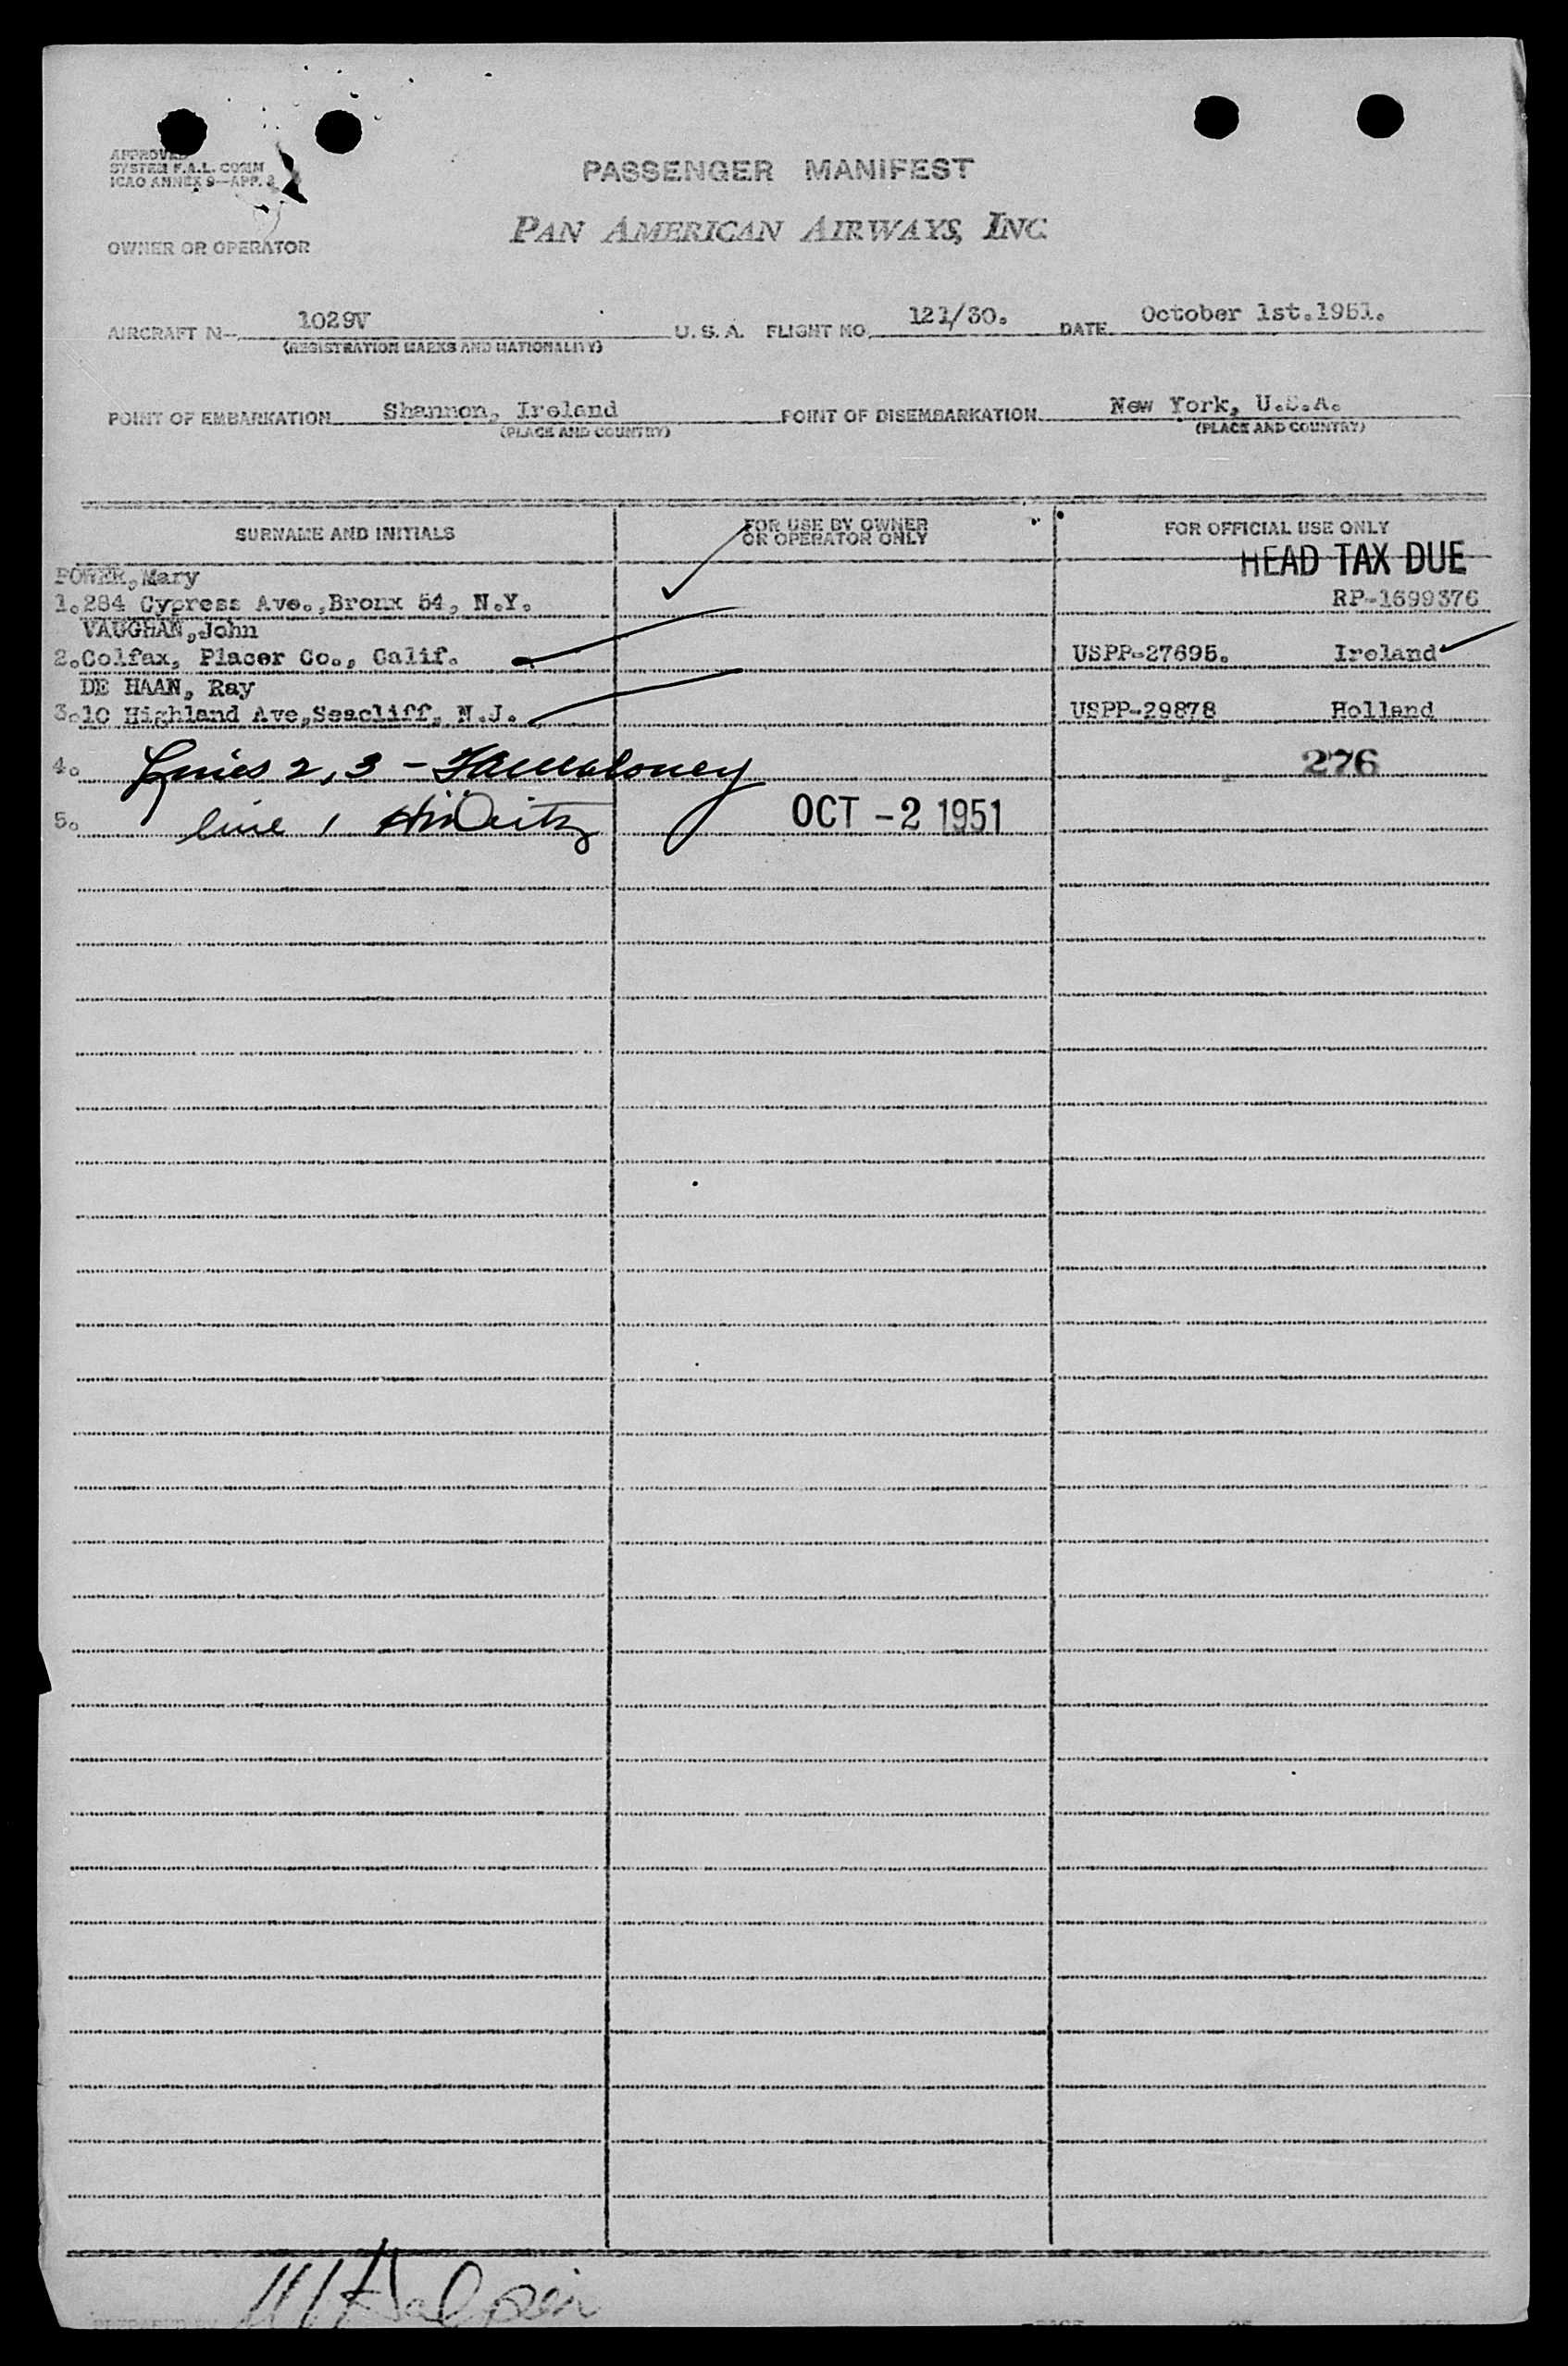 APPROVED
SYSTEM F.A.L. COMM
ICAO ANNEX 9—APP. 2
PASSENGER MANIFEST
PAN AMERICAN AIRWAYS, INC.
OWNER OR OPERATOR
AIRCRAFT N- 1029V U. S. A. FLIGHT NO. 121/30. DATE October 1st.1951.
(REGISTRATION MARKS AND NATIONALITY)
POINT OF EMBARKATION Shannon, Ireland POINT OF DISEMBARKATION New York, U.S.A.
(PLACE AND COUNTRY) (PLACE AND COUNTRY)
SURNAME AND INITIALS FOR USE BY OWNER OR OPERATOR ONLY FOR OFFICIAL USE ONLY
HEAD TAX DUE
POWER, Mary
1. 284 Cypress Ave., Bronx 54, N.Y. RP-1699376
VAUGHAN, John
2. Colfax, Placer Co., Calif. USPP-27695. Ireland
DE HAAN, Ray
3. 10 Highland Ave, Seacliff, N.J. USPP-29878 Holland
4. Lines 2, 3 - 276
5. line 1 OCT -2 1951